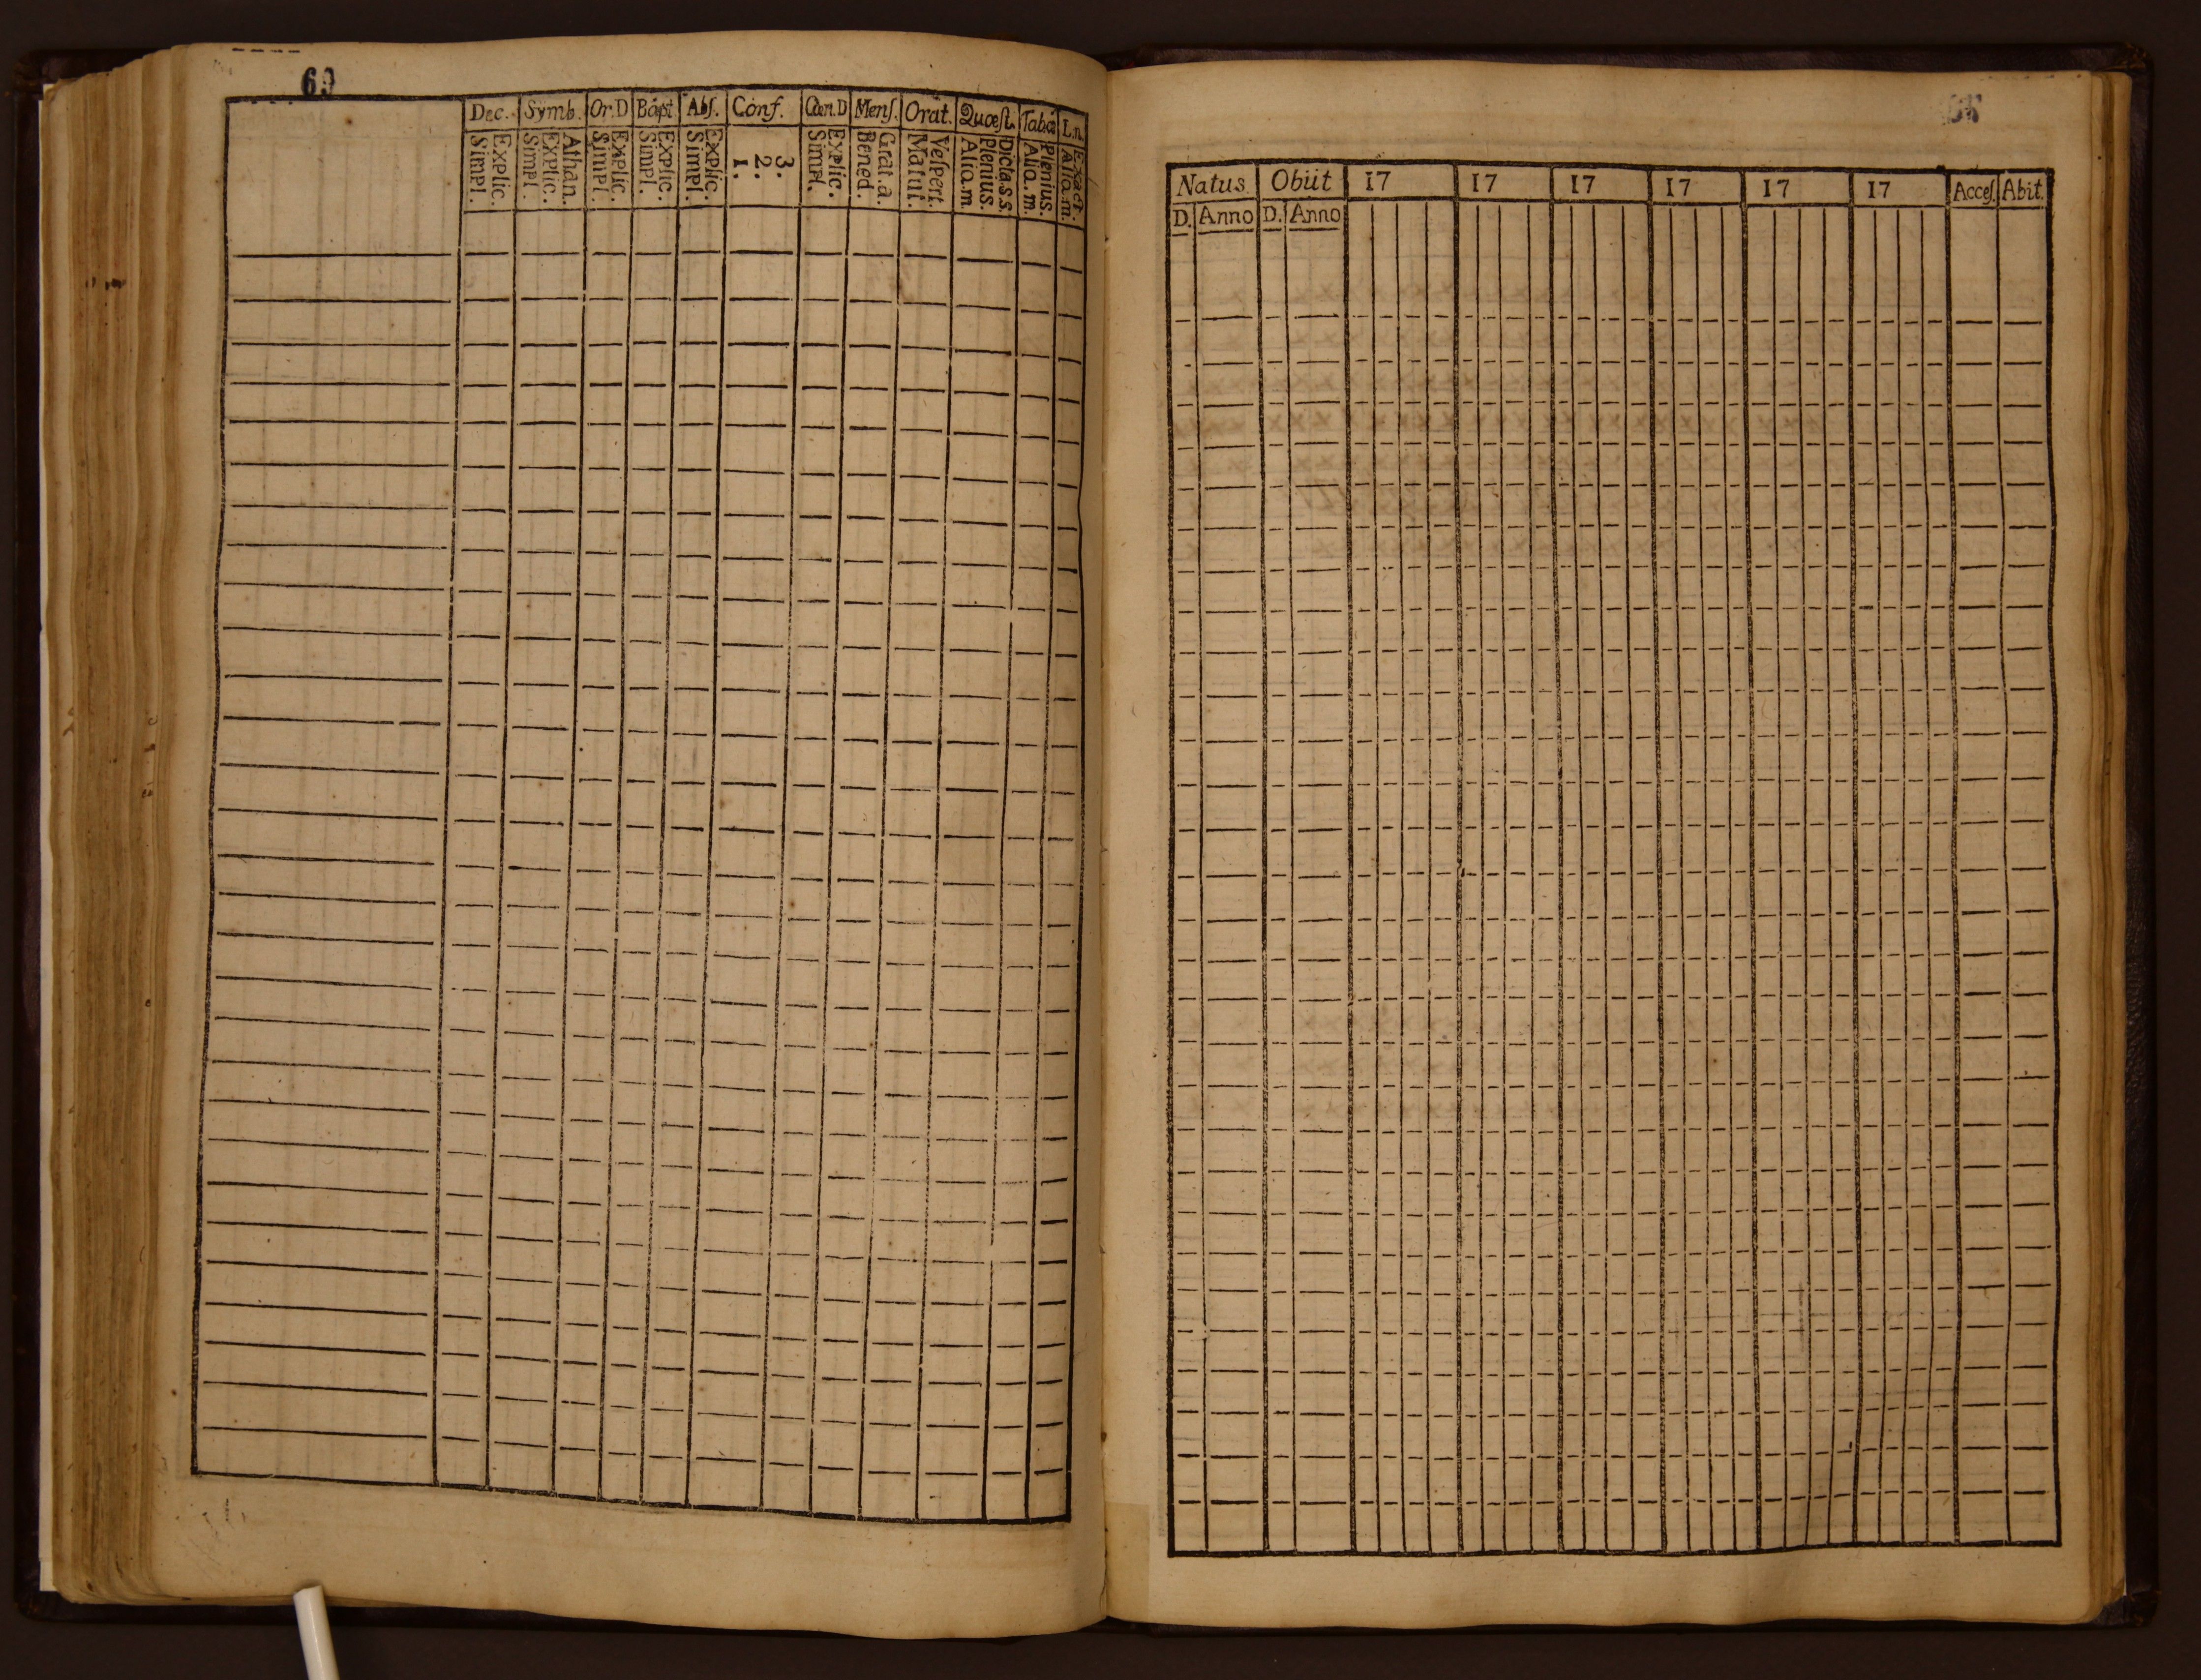 69
Dec. Symb. Or.D Bapt Abſ. Conf. Cœn.D Menſ. Orat. Quœſt. Taba L.n.
Explic. Simpl.
Athan. Explic. Simpl.
Explic. Simpl.
Explic. Simpl.
Explic. Simpl.
3. 2. 1.
Explic. Simpl.
Grat.a. Bened.
Veſpert. Matut.
Dicta.s.s. Plenius. Alio.m.
Plenius. Alio.m.
Exact. Alio.m.
Natus Obiit 17 17 17 17 17 17 Acceſ. Abit.
D. Anno D. Anno